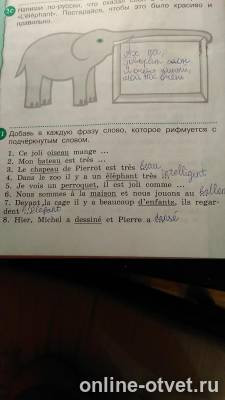 Напиши по-русски, что сказал слон
«L'éléphant». Постарайся, чтобы это было красиво и
правильно.
Добавь в каждую фразу слово, которое рифмуется с
подчёркнутым словом.
1. Ce joli oiseau mange ...
2. Mon bateau est très ...
3. Le chapeau de Pierrot est très beau
4. Dans le zoo il y a un éléphant très intelligent
5. Je vois un perroquet, il est joli comme ...
6. Nous sommes à la maison et nous jouons au ballon
7. Devant la cage il y a beaucoup d'enfants, ils regar-
dent l'éléphant
8. Hier, Michel a dessiné et Pierre a dansé
online-otvet.ru